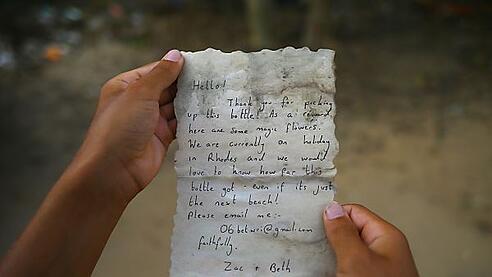 Hello!
Thank you for picking
up this bottle! As a reward
here are some magic flowers.
We are currently on holiday
in Rhodes and we would
love to know how far this
bottle got - even if its just
the next beach!
Please email me:-
faithfully,
Zac + Beth